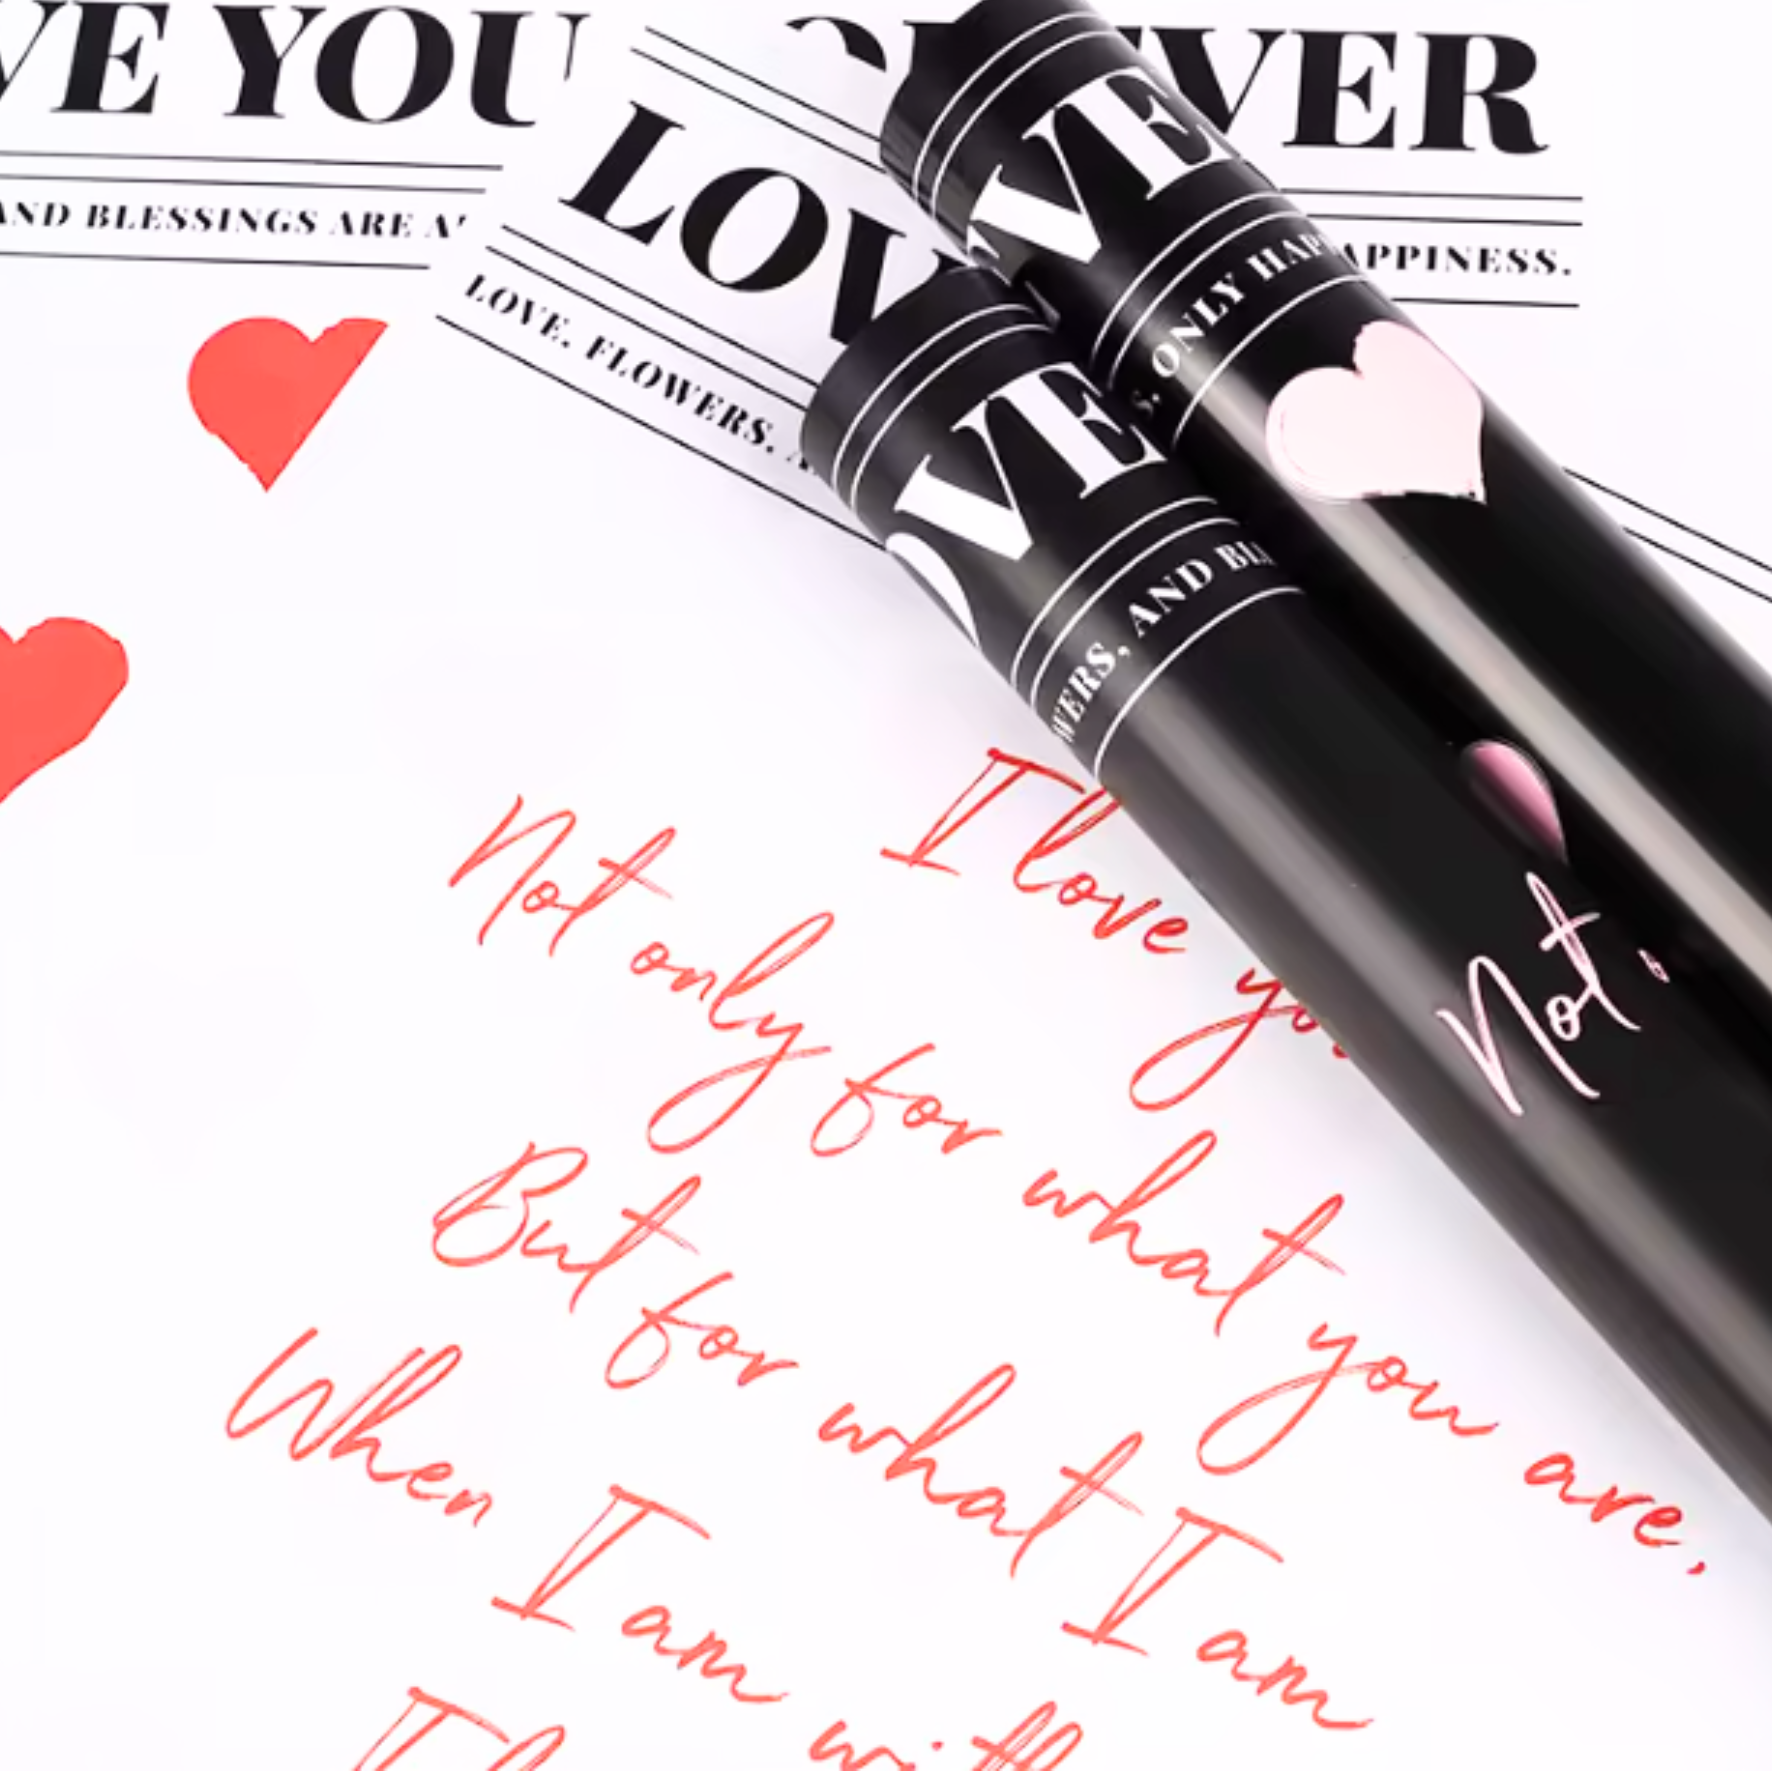 VE YOU
EVER
AND BLESSINGS ARE
APPINESS.
LOV
LOVE. FLOWERS.
VE
S. ONLY HAP
OVE
WERS, AND BL
Not
I love yo
Not only for what you are.
But for what I am
When I am with